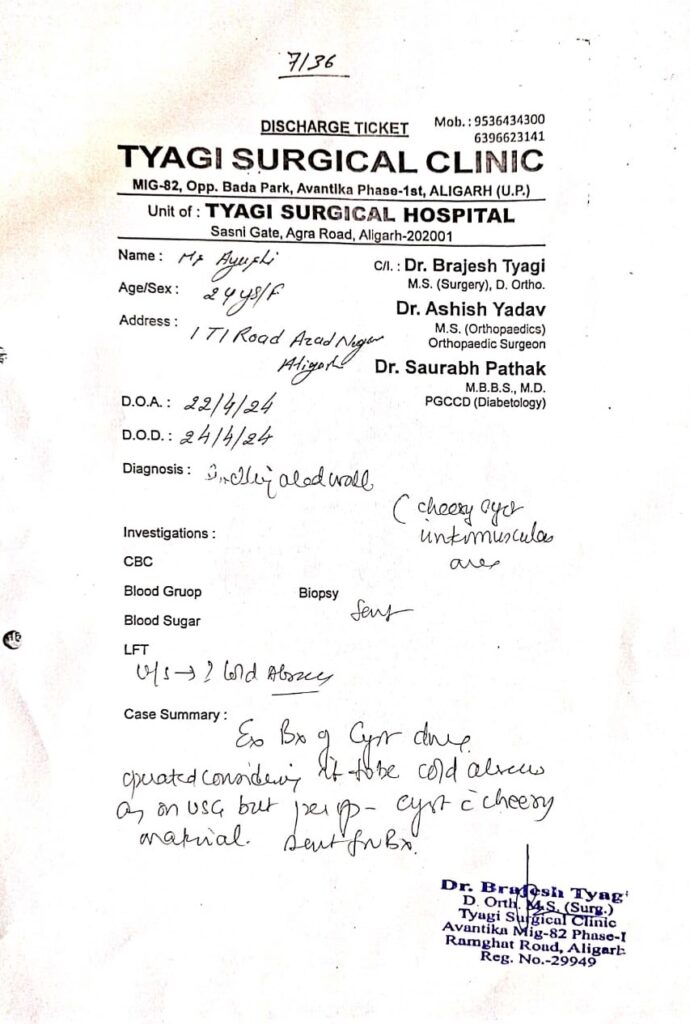 7/36
DISCHARGE TICKET
Mob. : 9536434300
6396623141
TYAGI SURGICAL CLINIC
MIG-82, Opp. Bada Park, Avantika Phase-1st, ALIGARH (U.P.)
Unit of : TYAGI SURGICAL HOSPITAL
Sasni Gate, Agra Road, Aligarh-202001
Name : Ayushi
Age/Sex : 24 ys/F
Address : ITI Road Azad Nagar
Aligarh
C/I. : Dr. Brajesh Tyagi
M.S. (Surgery), D. Ortho.
Dr. Ashish Yadav
M.S. (Orthopaedics)
Orthopaedic Surgeon
Dr. Saurabh Pathak
M.B.B.S., M.D.
PGCCD (Diabetology)
D.O.A. : 22/4/24
D.O.D. : 24/4/24
Diagnosis :
(cheesy cyst
intramuscular
area
Investigations :
CBC
Blood Gruop
Biopsy
Sent
Blood Sugar
LFT
U/S → ? Cold Abscess
Case Summary :
Ex Bx of Cyst done
operated considering it to be cold abscess
as on USG but per op - cyst c̄ cheesy
material. sent for Bx.
Dr. Brajesh Tyag
D. Orth. M.S. (Surg.)
Tyagi Surgical Clinic
Avantika Mig-82 Phase-I
Ramghat Road, Aligarh
Reg. No.-29949